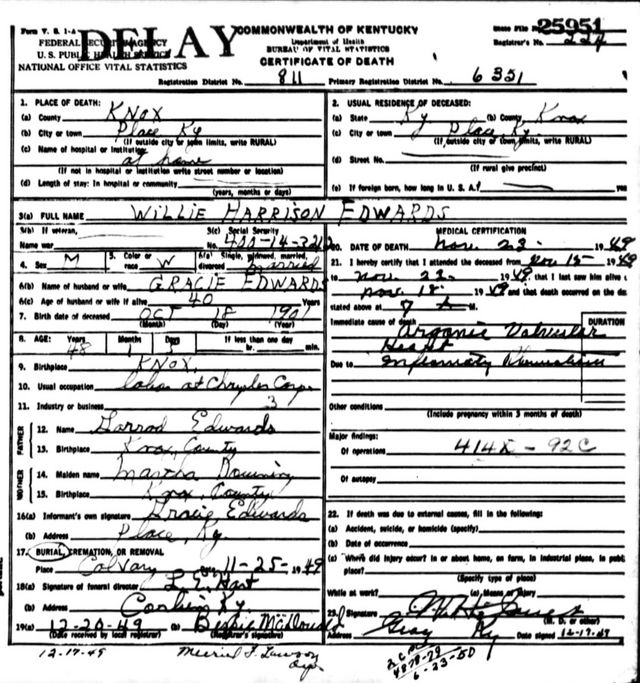 Form V. S. 1-A
DELAY
COMMONWEALTH OF KENTUCKY
State File No. 25951
FEDERAL SECURITY AGENCY
Department of Health
Registrar's No. 224
U. S. PUBLIC HEALTH SERVICE
BUREAU OF VITAL STATISTICS
NATIONAL OFFICE VITAL STATISTICS
CERTIFICATE OF DEATH
Registration District No. 811 Primary Registration District No. 6351
1. PLACE OF DEATH:
(a) County Knox
(b) City or town Place Ky
(If outside city or town limits, write RURAL)
(c) Name of hospital or institution
at home
(If not in hospital or institution write street number or location)
(d) Length of stay: In hospital or community
(years, months or days)
2. USUAL RESIDENCE OF DECEASED:
(a) State Ky (b) County Knox
(c) City or town Place, Ky.
(If outside city or town limits, write RURAL)
(d) Street No.
(If rural give precinct)
(e) If foreign born, how long in U. S. A.?
3(a) FULL NAME WILLIE HARRISON EDWARDS
3(b) If veteran, Name war
3(c) Social Security No. 400-14-3212
4. Sex M
5. Color or race W
6(a) Single, widowed, married, divorced Married
6(b) Name of husband or wife GRACIE EDWARDS
6(c) Age of husband or wife if alive 40 Years
7. Birth date of deceased OCT 18 1901
(Month) (Day) (Year)
8. AGE: Years 48 Months 1 Days 5 If less than one day
hr. min.
9. Birthplace KNOX,
10. Usual occupation labor at Chrysler Corp.
11. Industry or business 3
FATHER
12. Name Garrod Edwards
13. Birthplace Knox, County
MOTHER
14. Maiden name Martha
15. Birthplace Knox, County
16(a) Informant's own signature Gracie Edwards
(b) Address Place, Ky.
17. BURIAL, CREMATION, OR REMOVAL
Place Calvary On 11-25-1949
18(a) Signature of funeral director L. E. Hart
(b) Address Corbin Ky
19(a) 12-20-49 (b) Bessie McDonald
(Date received by local registrar) (Registrar's signature)
MEDICAL CERTIFICATION
20. DATE OF DEATH Nov. 23. 1949
21. I hereby certify that I attended the deceased from Nov 15 1949
to Nov. 22. 1949, that I last saw him alive on
Nov. 18. 1949 and that death occurred on the date
stated above at 7 A M.
DURATION
Immediate cause of death Organic Valvular
Heart
Due to
Other conditions
(Include pregnancy within 3 months of death)
Major findings:
Of operations 414X - 92C
Of autopsy
22. If death was due to external causes, fill in the following:
(a) Accident, suicide, or homicide (specify)
(b) Date of occurrence
(c) Where did injury occur? in or about home, on farm, in industrial place, in public
place?
(Specify type of place)
While at work? (e) Means of Injury
23. Signature
(M. D. or other)
Address Gray Ky Date signed 12-17-49
12-17-49
4878-79
6-23-50